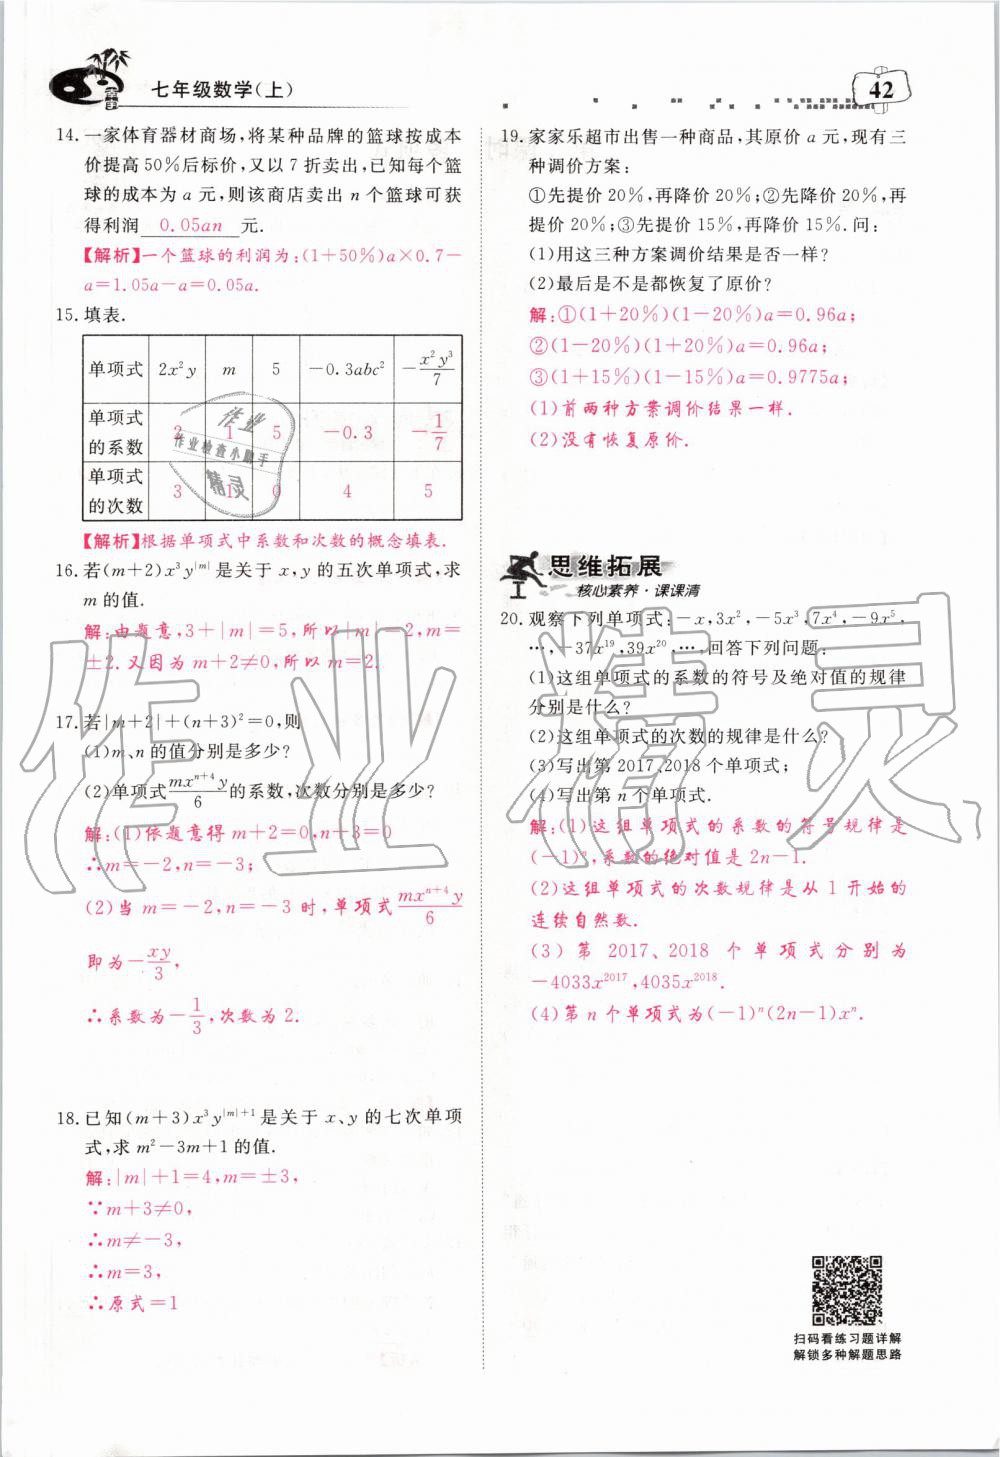 七年级数学(上)
42
14.一家体育器材商场,将某种品牌的篮球按成本
价提高50%后标价,又以7折卖出,已知每个篮
球的成本为a元,则该商店卖出n个篮球可获
得利润 0.05an 元.
【解析】一个篮球的利润为:(1+50%)a×0.7-
a=1.05a-a=0.05a.
15.填表.
单项式 2x²y m 5 -0.3abc² -x²y³/7
单项式的系数 2 1 5 -0.3 -1/7
单项式的次数 3 1 0 4 5
【解析】根据单项式中系数和次数的概念填表.
16.若(m+2)x³y^|m|是关于x,y的五次单项式,求
m的值.
解:由题意,3+|m|=5,所以|m|=2,m=
±2.又因为m+2≠0,所以m=2.
17.若|m+2|+(n+3)²=0,则
(1)m、n的值分别是多少?
(2)单项式mx^(n+4)y/6的系数,次数分别是多少?
解:(1)依题意得m+2=0,n+3=0
∴m=-2,n=-3;
(2)当m=-2,n=-3时,单项式mx^(n+4)y/6
即为-xy/3,
∴系数为-1/3,次数为2.
18.已知(m+3)x³y^(|m|+1)是关于x、y的七次单项
式,求m²-3m+1的值.
解:|m|+1=4,m=±3,
∵m+3≠0,
∴m≠-3,
∴m=3,
∴原式=1
19.家家乐超市出售一种商品,其原价a元,现有三
种调价方案:
①先提价20%,再降价20%;②先降价20%,再
提价20%;③先提价15%,再降价15%.问:
(1)用这三种方案调价结果是否一样?
(2)最后是不是都恢复了原价?
解:①(1+20%)(1-20%)a=0.96a;
②(1-20%)(1+20%)a=0.96a;
③(1+15%)(1-15%)a=0.9775a;
(1)前两种方案调价结果一样.
(2)没有恢复原价.
思维拓展
核心素养·课课清
20.观察下列单项式:-x,3x²,-5x³,7x⁴,-9x⁵,
…,-37x¹⁹,39x²⁰,…,回答下列问题:
(1)这组单项式的系数的符号及绝对值的规律
分别是什么?
(2)这组单项式的次数的规律是什么?
(3)写出第2017、2018个单项式;
(4)写出第n个单项式.
解:(1)这组单项式的系数的符号规律是
(-1)ⁿ,系数的绝对值是2n-1.
(2)这组单项式的次数规律是从1开始的
连续自然数.
(3)第2017、2018个单项式分别为
-4033x²⁰¹⁷,4035x²⁰¹⁸.
(4)第n个单项式为(-1)ⁿ(2n-1)xⁿ.
扫码看练习题详解
解锁多种解题思路
作业
作业检查小助手
精灵
作业精灵